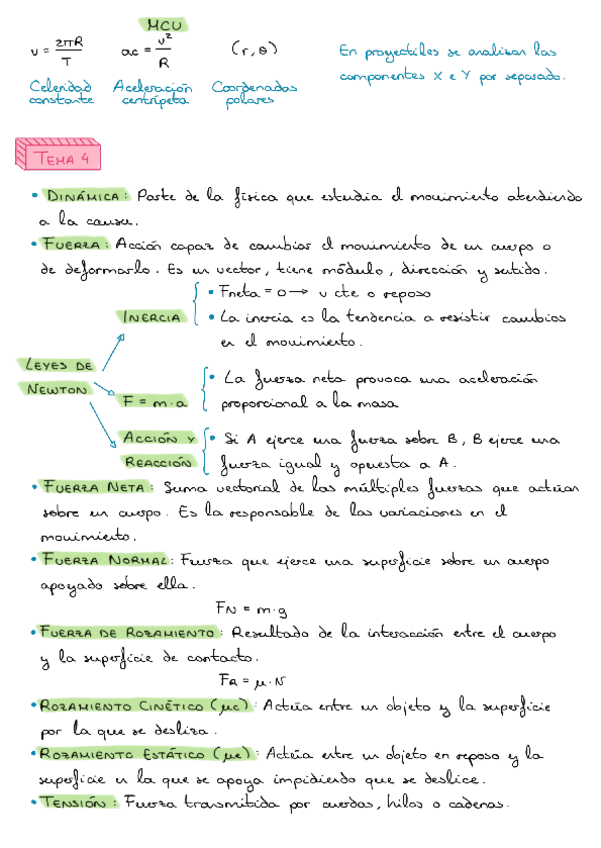 MCU
v = 2πR/T   ac = v²/R   (r, θ)   En proyectiles se analizan las
Celeridad   Aceleración   Coordenadas   componentes X e Y por separado.
constante   centrípeta   polares
TEMA 4
• DINÁMICA: Parte de la física que estudia el movimiento atendiendo
a la causa.
• FUERZA: Acción capaz de cambiar el movimiento de un cuerpo o
de deformarlo. Es un vector, tiene módulo, dirección y sentido.
• Fneta = 0 → v cte o reposo
INERCIA   • La inercia es la tendencia a resistir cambios
en el movimiento.
LEYES DE
NEWTON
• La fuerza neta provoca una aceleración
F = m·a   proporcional a la masa
ACCIÓN Y   • Si A ejerce una fuerza sobre B, B ejerce una
REACCIÓN   fuerza igual y opuesta a A.
• FUERZA NETA: Suma vectorial de las múltiples fuerzas que actúan
sobre un cuerpo. Es la responsable de las variaciones en el
movimiento.
• FUERZA NORMAL: Fuerza que ejerce una superficie sobre un cuerpo
apoyado sobre ella.
FN = m·g
• FUERZA DE ROZAMIENTO: Resultado de la interacción entre el cuerpo
y la superficie de contacto.
FR = μ·N
• ROZAMIENTO CINÉTICO (μc): Actúa entre un objeto y la superficie
por la que se desliza.
• ROZAMIENTO ESTÁTICO (μe): Actúa entre un objeto en reposo y la
superficie en la que se apoya impidiendo que se deslice.
• TENSIÓN: Fuerza transmitida por cuerdas, hilos o cadenas.